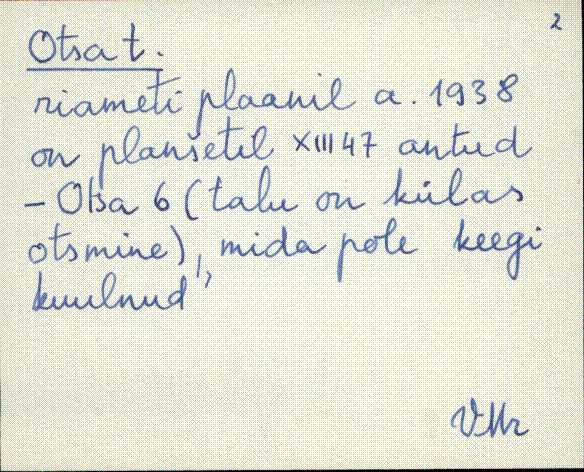 2
Otsa t.
riameti plaanil a. 1938
on planšetil XIII 47 antud
– Otsa 6 (talu on külas
otsmine), mida pole keegi
kuulnud